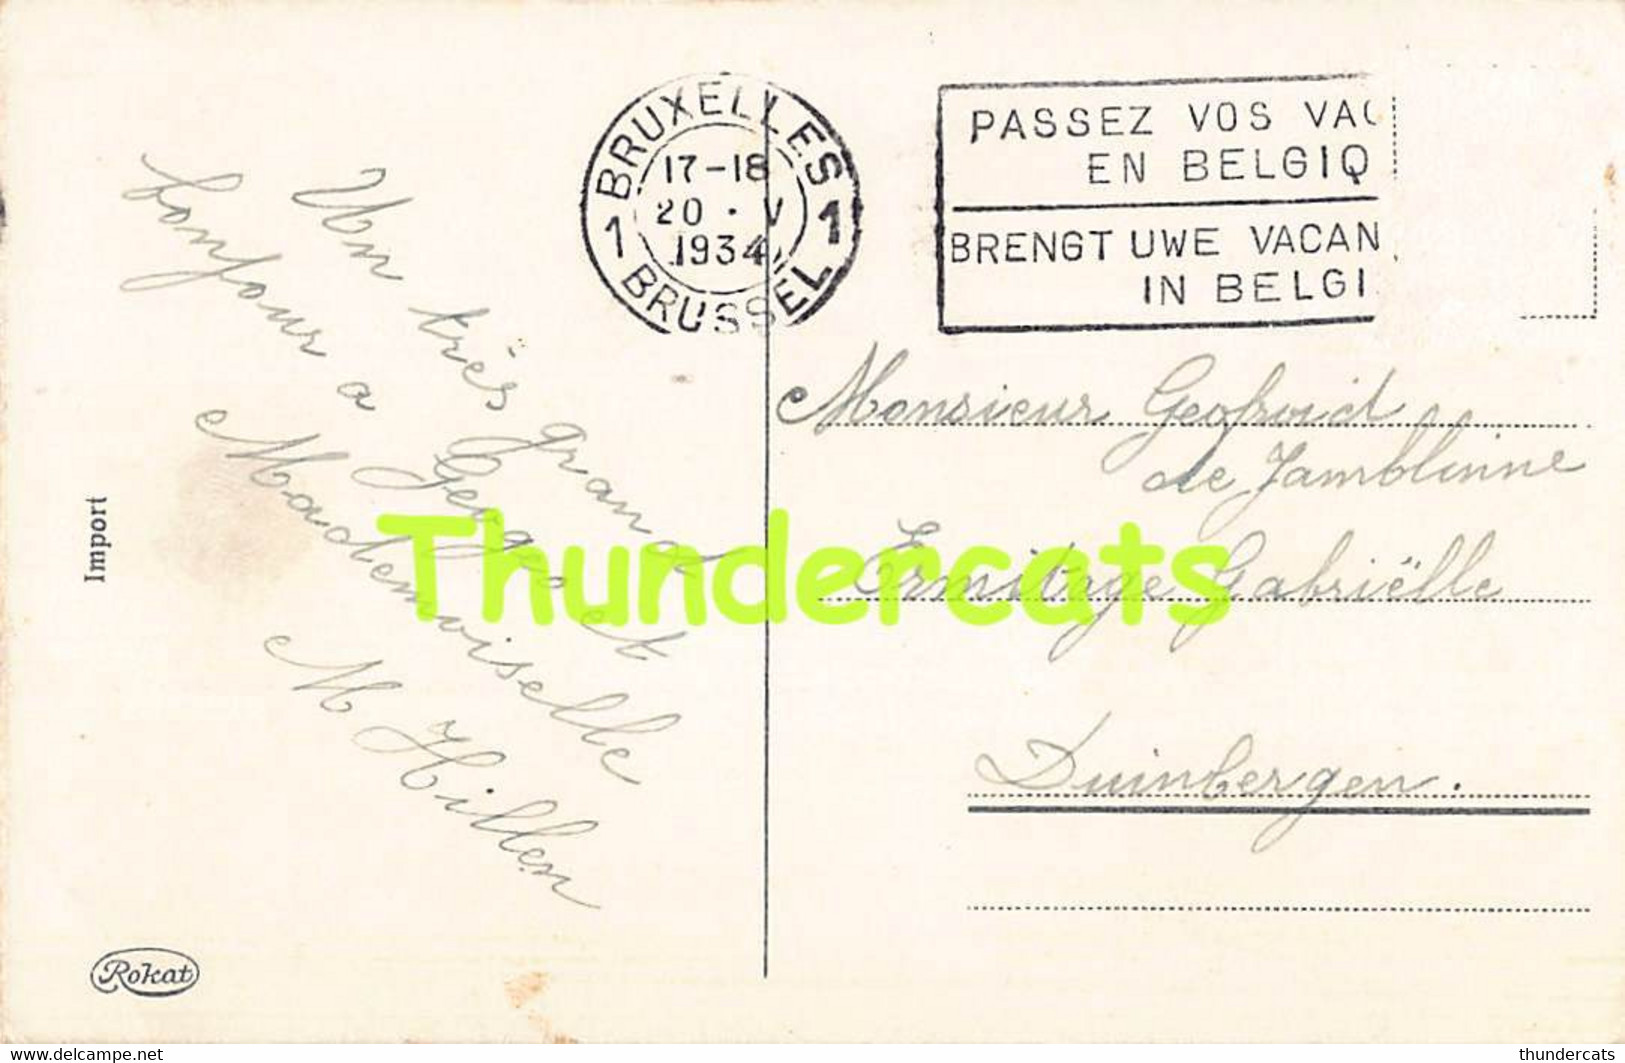 BRUXELLES
17-18
20 · V
1934
1 1
BRUSSEL
PASSEZ VOS VAC
EN BELGIQ
BRENGT UWE VACAN
IN BELGI
Un très grand
bonjour a Geogeo et
Mademoiselle
M Hillen
Monsieur Geofroid
de Jamblinne
Ermitage Gabriëlle
Duinbergen.
Import
Rokat
Thundercats
www.delcampe.net
thundercats